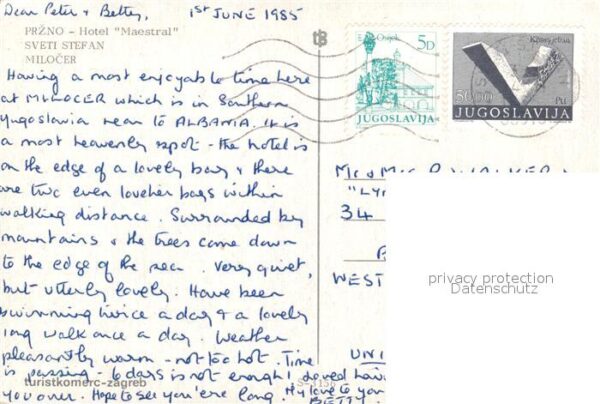 Dear Peter & Betty, 1st JUNE 1985
PRŽNO – Hotel "Maestral"
SVETI STEFAN
MILOČER
Having a most enjoyable time here
at MILOCER which is in Southern
Yugoslavia near to ALBANIA. It is
a most heavenly spot - the hotel is
on the edge of a lovely bay & there
are two even lovelier bays within
walking distance. Surrounded by
mountains & the trees come down
to the edge of the sea. Very quiet,
but utterly lovely. Have been
swimming twice a day & a lovely
long walk once a day. Weather
pleasantly warm - not too hot. Time
is passing - 6 days is not enough! Loved having
turistkomerc-zagreb
you over. Hope to see you 'ere long. My love to you
BETTY
tb
Osijek 5D
JUGOSLAVIJA
5000
JUGOSLAVIJA
Mr & Mrs P. WALKER
34
WEST
UNI
privacy protection
Datenschutz